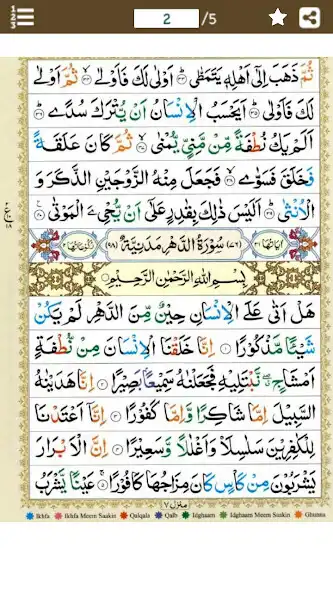 2 /5
ثُمَّ ذَهَبَ اِلٰٓى اَهْلِهٖ يَتَمَطّٰى ؕ‏ ٣٣ اَوْلٰى لَكَ فَاَوْلٰى ۙ‏ ٣٤ ثُمَّ اَوْلٰى
لَكَ فَاَوْلٰى ؕ‏ ٣٥ اَيَحْسَبُ الْاِنْسَانُ اَنْ يُّتْرَكَ سُدًى ؕ‏ ٣٦
اَلَمْ يَكُ نُطْفَةً مِّنْ مَّنِىٍّ يُّمْنٰى ۙ‏ ٣٧ ثُمَّ كَانَ عَلَقَةً
فَخَلَقَ فَسَوّٰى ۙ‏ ٣٨ فَجَعَلَ مِنْهُ الزَّوْجَيْنِ الذَّكَرَ وَ
الْاُنْثٰى ؕ‏ ٣٩ اَلَيْسَ ذٰلِكَ بِقٰدِرٍ عَلٰٓى اَنْ يُّحْیِۦَ الْمَوْتٰى ٤٠
اٰيَاتُهَا ٣١ (٧٦) سُوْرَةُ الدَّهْرِ مَدَنِيَّةٌ (٩٨) رُكُوْعَاتُهَا ٢
بِسْمِ اللّٰهِ الرَّحْمٰنِ الرَّحِيْمِ
هَلْ اَتٰى عَلَى الْاِنْسَانِ حِيْنٌ مِّنَ الدَّهْرِ لَمْ يَكُنْ
شَيْئًا مَّذْكُوْرًا ١ اِنَّا خَلَقْنَا الْاِنْسَانَ مِنْ نُّطْفَةٍ
اَمْشَاجٍ ۖ نَّبْتَلِيْهِ فَجَعَلْنٰهُ سَمِيْعًۢا بَصِيْرًا ٢ اِنَّا هَدَيْنٰهُ
السَّبِيْلَ اِمَّا شَاكِرًا وَّاِمَّا كَفُوْرًا ٣ اِنَّآ اَعْتَدْنَا
لِلْكٰفِرِيْنَ سَلٰسِلَا۟ وَاَغْلٰلًا وَّسَعِيْرًا ٤ اِنَّ الْاَبْرَارَ
يَشْرَبُوْنَ مِنْ كَاْسٍ كَانَ مِزَاجُهَا كَافُوْرًا ۚ‏ ٥ عَيْنًا يَّشْرَبُ
منزل ٧
Ikhfa Ikhfa Meem Saakin Qalqala Qalb Idghaam Idghaam Meem Saakin Ghunna